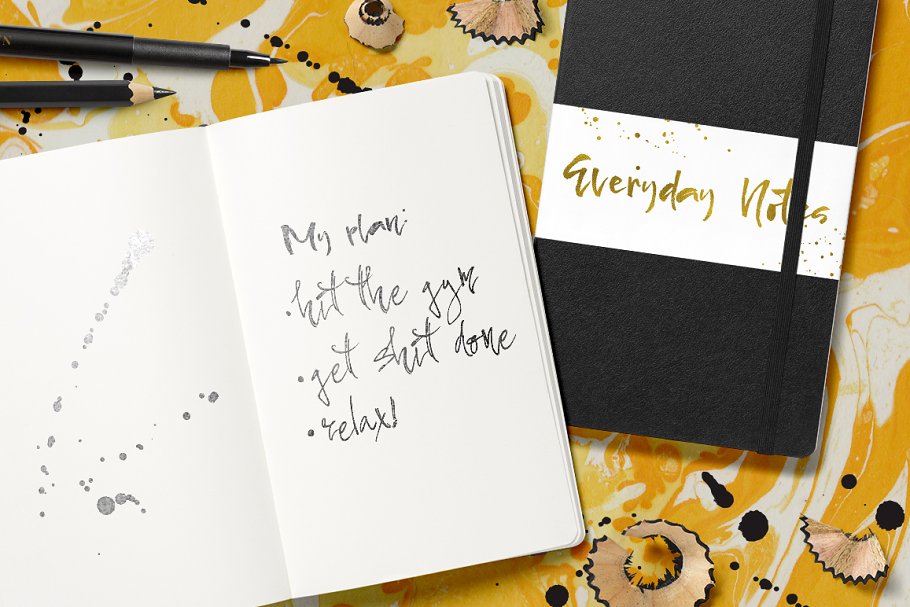 My plan:
•hit the gym
•get shit done
•relax!
Everyday Notes